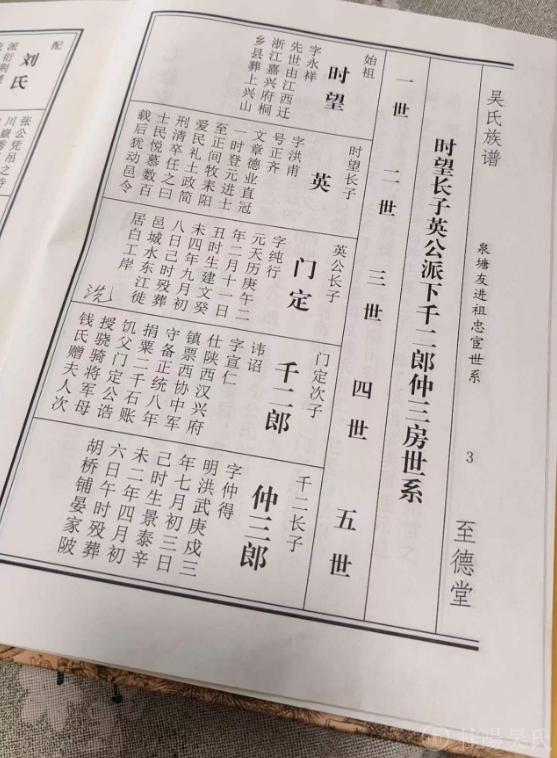 吴氏族谱
泉塘友进祖忠宦世系
3
至德堂
时望长子英公派下千二郎仲三房世系
一世
二世
三世
四世
五世
始祖
时望
字永祥
先世由江西迁
浙江嘉兴府桐
乡县葬上兴山
时望长子
英
字洪甫
号正齐
文章德业直冠
一时登元进士
至正间牧耒阳
爱民礼士政简
刑清卒任之曰
士民悦慕数百
载后犹动邑令
英公长子
门定
字纯行
元天历庚午二
年二月十一日
丑时生建文癸
未四年九月初
八日己时殁葬
邑城水东江徙
居白工岸
门定次子
千二郎
讳诏
字宣仁
仕陕西汉兴府
镇票西协中军
守备正统八年
捐粟二千石账
饥父门定公诰
授骁骑将军母
钱氏赠夫人次
千二长子
仲三郎
字仲得
明洪武庚戌三
年七月初三日
己时生景泰辛
未二年四月初
六日午时殁葬
胡桥铺晏家陂
配
刘氏
张公凭吊
耒陽吴氏